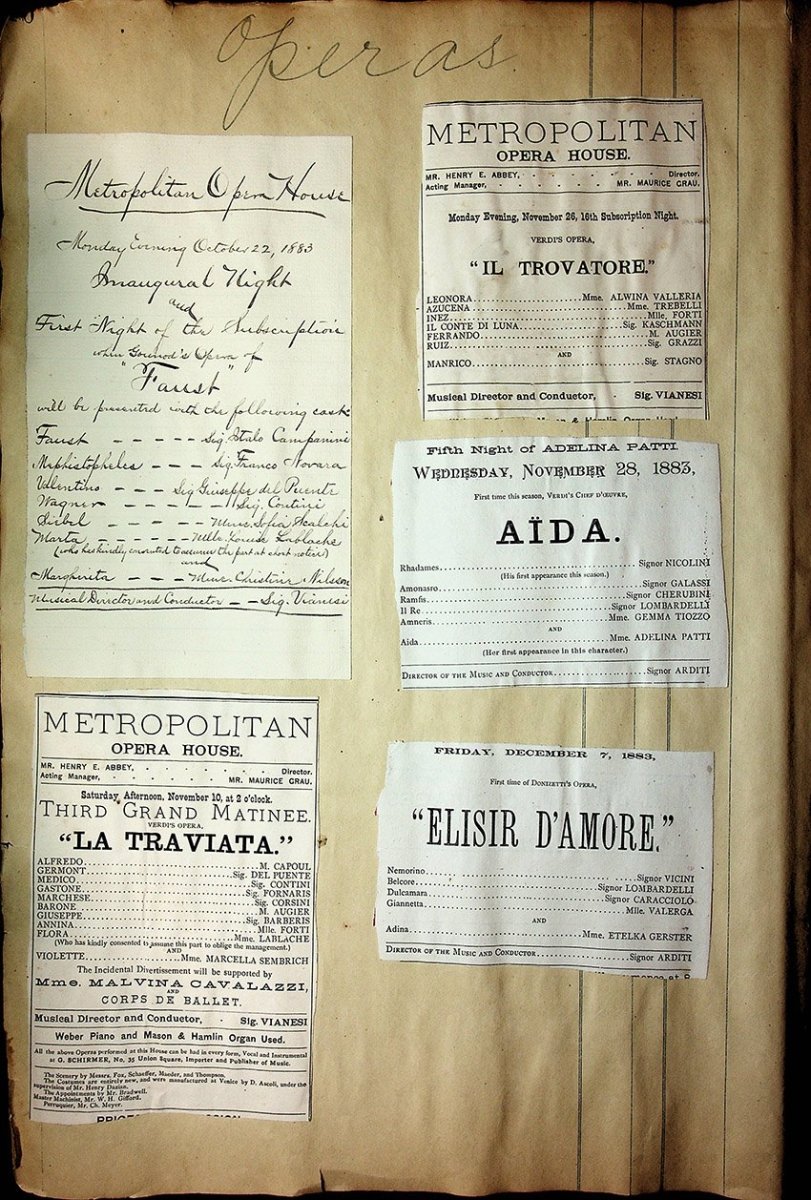 Operas
Metropolitan Opera House
Monday Evening October 22, 1883
Inaugural Night
and
First Night of the Subscription
when Gounod's Opera of
"Faust"
will be presented with the following cast
Faust - - - - - Sig. Italo Campanini
Mephistopheles - - - Sig. Franco Novara
Valentino - - - Sig Giuseppe del Puente
Wagner - - - - - Sig. Contini
Siebel - - - - - Mme. Sofia Scalchi
Marta - - - - - - Mlle. Louise Lablache
(who has kindly consented to assume the part at short notice)
and
Margherita - - - Mme. Christine Nilsson
Musical Director and Conductor - - Sig. Vianesi
METROPOLITAN
OPERA HOUSE.
MR. HENRY E. ABBEY, - - - - - - Director.
Acting Manager, - - - - - - MR. MAURICE GRAU.
Saturday, Afternoon, November 10, at 2 o'clock.
THIRD GRAND MATINEE.
VERDI'S OPERA,
"LA TRAVIATA."
ALFREDO........M. CAPOUL
GERMONT........Sig. DEL PUENTE
MEDICO........Sig. CONTINI
GASTONE........Sig. FORNARIS
MARCHESE........Sig. CORSINI
BARONE........M. AUGIER
GIUSEPPE........Sig. BARBERIS
ANNINA........Mlle. FORTI
FLORA........Mme. LABLACHE
(Who has kindly consented to assume this part to oblige the management.)
AND
VIOLETTE........Mme. MARCELLA SEMBRICH
The Incidental Divertissement will be supported by
Mme. MALVINA CAVALAZZI,
AND
CORPS DE BALLET.
Musical Director and Conductor, - Sig. VIANESI
Weber Piano and Mason & Hamlin Organ Used.
All the above Operas performed at this House can be had in every form, Vocal and Instrumental
at G. SCHIRMER, No. 35 Union Square, Importer and Publisher of Music.
The Scenery by Messrs. Fox, Schaeffer, Maeder, and Thompson.
The Costumes are entirely new, and were manufactured at Venice by D. Ascoli, under the
supervision of Mr. Henry Dazian.
The Appointments by Mr. Bradwell.
Master Machinist, Mr. W. H. Gifford.
Perruquier, Mr. Ch. Meyer.
METROPOLITAN
OPERA HOUSE.
MR. HENRY E. ABBEY, - - - - - - Director.
Acting Manager, - - - - - - MR. MAURICE GRAU.
Monday Evening, November 26, 16th Subscription Night.
VERDI'S OPERA,
"IL TROVATORE."
LEONORA........Mme. ALWINA VALLERIA
AZUCENA........Mme. TREBELLI
INEZ........Mlle. FORTI
IL CONTE DI LUNA........Sig. KASCHMANN
FERRANDO........M. AUGIER
RUIZ........Sig. GRAZZI
AND
MANRICO........Sig. STAGNO
Musical Director and Conductor, - Sig. VIANESI
Fifth Night of ADELINA PATTI
WEDNESDAY, NOVEMBER 28, 1883,
First time this season, VERDI'S CHEF D'ŒUVRE,
AÏDA.
Rhadames........Signor NICOLINI
(His first appearance this season.)
Amonasro........Signor GALASSI
Ramfis........Signor CHERUBINI
Il Re........Signor LOMBARDELLI
Amneris........Mme. GEMMA TIOZZO
AND
Aida........Mme. ADELINA PATTI
(Her first appearance in this character.)
DIRECTOR OF THE MUSIC AND CONDUCTOR........Signor ARDITI
FRIDAY, DECEMBER 7, 1883,
First time of DONIZETTI'S OPERA,
"ELISIR D'AMORE."
Nemorino........Signor VICINI
Belcore........Signor LOMBARDELLI
Dulcamara........Signor CARACCIOLO
Giannetta........Mlle. VALERGA
AND
Adina........Mme. ETELKA GERSTER
DIRECTOR OF THE MUSIC AND CONDUCTOR........Signor ARDITI